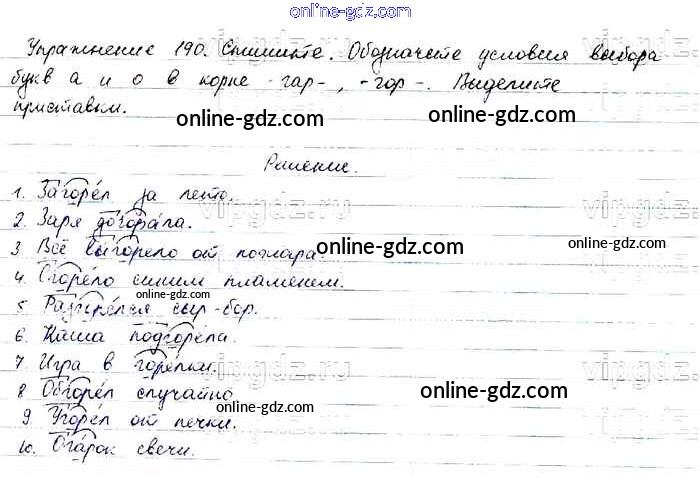 online-gdz.com
Упражнение 190. Спишите. Обозначьте условия выбора
букв а и о в корне -гар-, -гор-. Выделите
приставки.
online-gdz.com
online-gdz.com
Решение.
vipgdz.ru
1. Загоре́л за лето.
2. Заря догора́ла.
3 Всё вы́горело от пожара.
online-gdz.com
4. Сгоре́ло синим пламенем.
online-gdz.com
5. Разгоре́лся сыр-бор.
6. Каша подгоре́ла.
online-gdz.com
7 Игра в горе́лки.
vipgdz.ru
8 Обгоре́л случайно
online-gdz.com
online-gdz.com
9. Угоре́л от печки.
10. Ога́рок свечи.
online-gdz.com